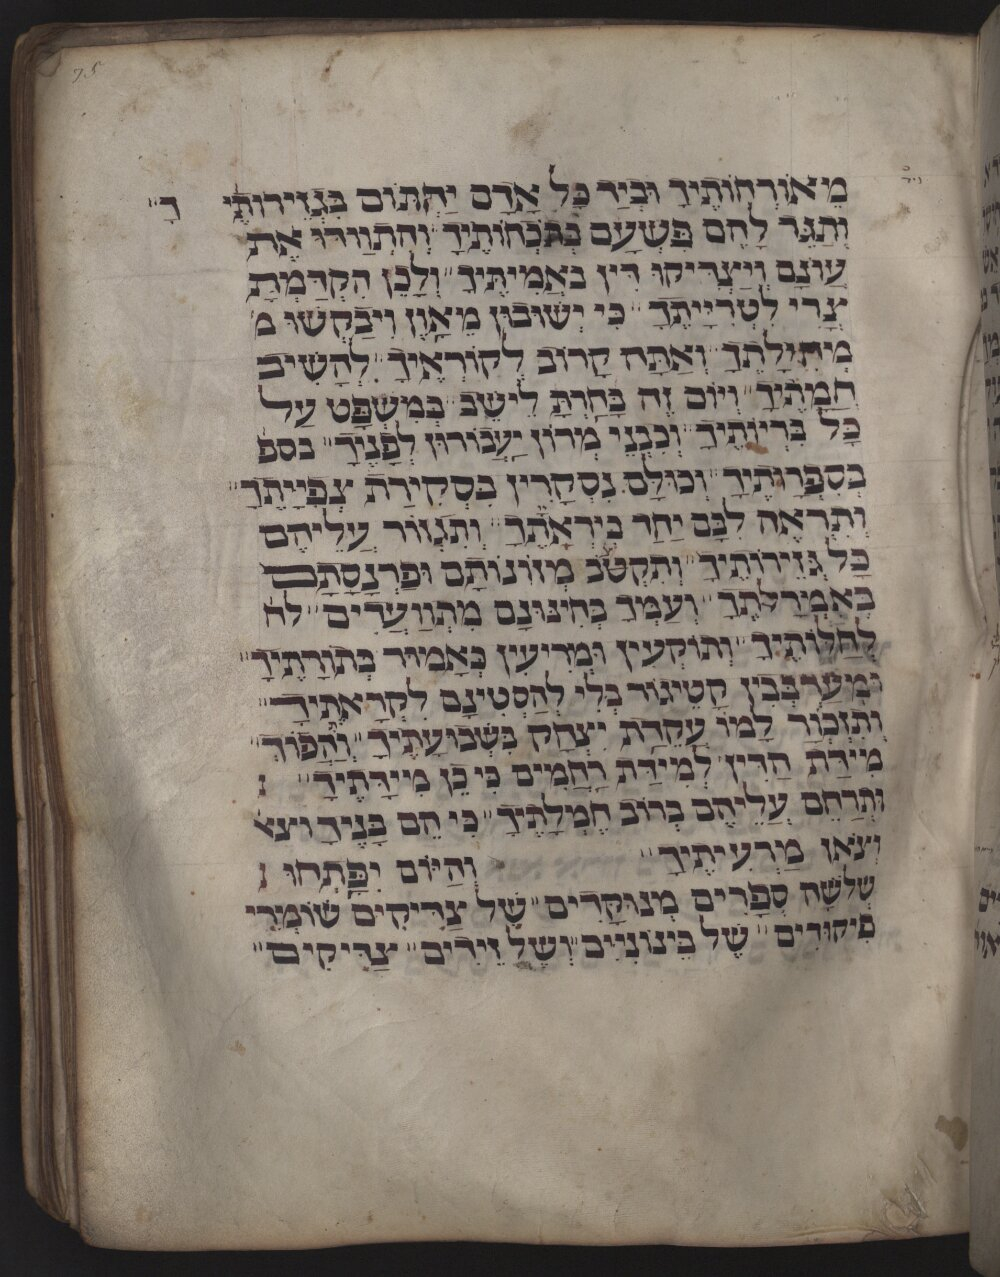 25
מֵאוֹרְחוֹתֶיךָ וּבְיַד כָּל אָדָם יַחְתּוֹם בִּגְזֵירוֹתֶי ךָ״
וְתַגֵּד לָהֶם פִּשְׁעָם בְּתֹכְחוֹתֶיךָ וְהִתְוַודּוּ אֶת
עֲוֹנָם וְיַצְדִּיקוּ דִין בַּאֲמִיתֶּיךָ״ וְלָכֵן הִקְדַּמְתָּ
צֳרִי לִטְרִיָּיתֶךָ״ כִּי יְשׁוּבוּן מֵאָוֶן וִיבַקְשׁוּ מ
מְחִילָתֶךָ״ וְאַתָּה קָרוֹב לְקוֹרְאֶיךָ״ לְהָשִׁיב
חֲמָתֶיךָ״ וְיוֹם זֶה בָּחַרְתָּ לֵישֵׁב״ בְּמִשְׁפָּט עַל
כָּל בִּרְיוֹתֶיךָ״ וְכִבְנֵי מְרוֹן יַעֲבוֹרוּן לְפָנֶיךָ״ בספ
בְסִפְרָוֹתֶיךָ״ וְכוּלָּם נִסְקָרִין בִּסְקִירַת צְפִיָּיתֶךָ״
וְתִרְאֶה לִבָּם יַחַד בְּיִרְאָתֶךָ״ וְתִגְזוֹר עֲלֵיהֶם
כָּל גְּזֵירוֹתֶיךָ״ וְתִקְטֹב מְזוֹנוֹתָם וּפַרְנָסָתָם
בְּאַמְרָלָתֶךָ״ וְעַמְּךָ בְּחִינּוּנָם מִתְוַועֲדִים״ לח
לְחַלּוֹתֶיךָ״ וְתוֹקְעִין וּמְרִיעִין כְּאָמוּר בְּתוֹרָתֶיךָ״
וּמְעַרְבְּבִין קַטֵיגוֹר בְּלִי לְהַסְטִינָם לִקְרָאתֶיךָ״
וְתִזְכּוֹר לָמוֹ עֲקֵדַת יִצְחָק בִּשְׁבוּעָתֶיךָ״ וְהַפוֹךְ״
מִידַּת הַדִּין לְמִידַּת רַחֲמִים כִּי כֵן מִידָּתֶיךָ״ נ
וּתְרַחֵם עֲלֵיהֶם בְּרוֹב חֶמְלָתֶיךָ״ כִּי הֵם בָּנֶיךָ וצא
וְצֹאן מַרְעִיתֶיךָ״ וְהַיּוֹם יִפָּתְחוּ נ
שְׁלֹשָׁה סְפָרִים מְנוּקָדִים״ שֶׁל צַדִּיקִים שׁוֹמְרֵי
פִיקוּדִים״ שֶׁל בֵּינוֹנִיִּים״ וְשֶׁל זֵידִים״ צַדִּיקִים״